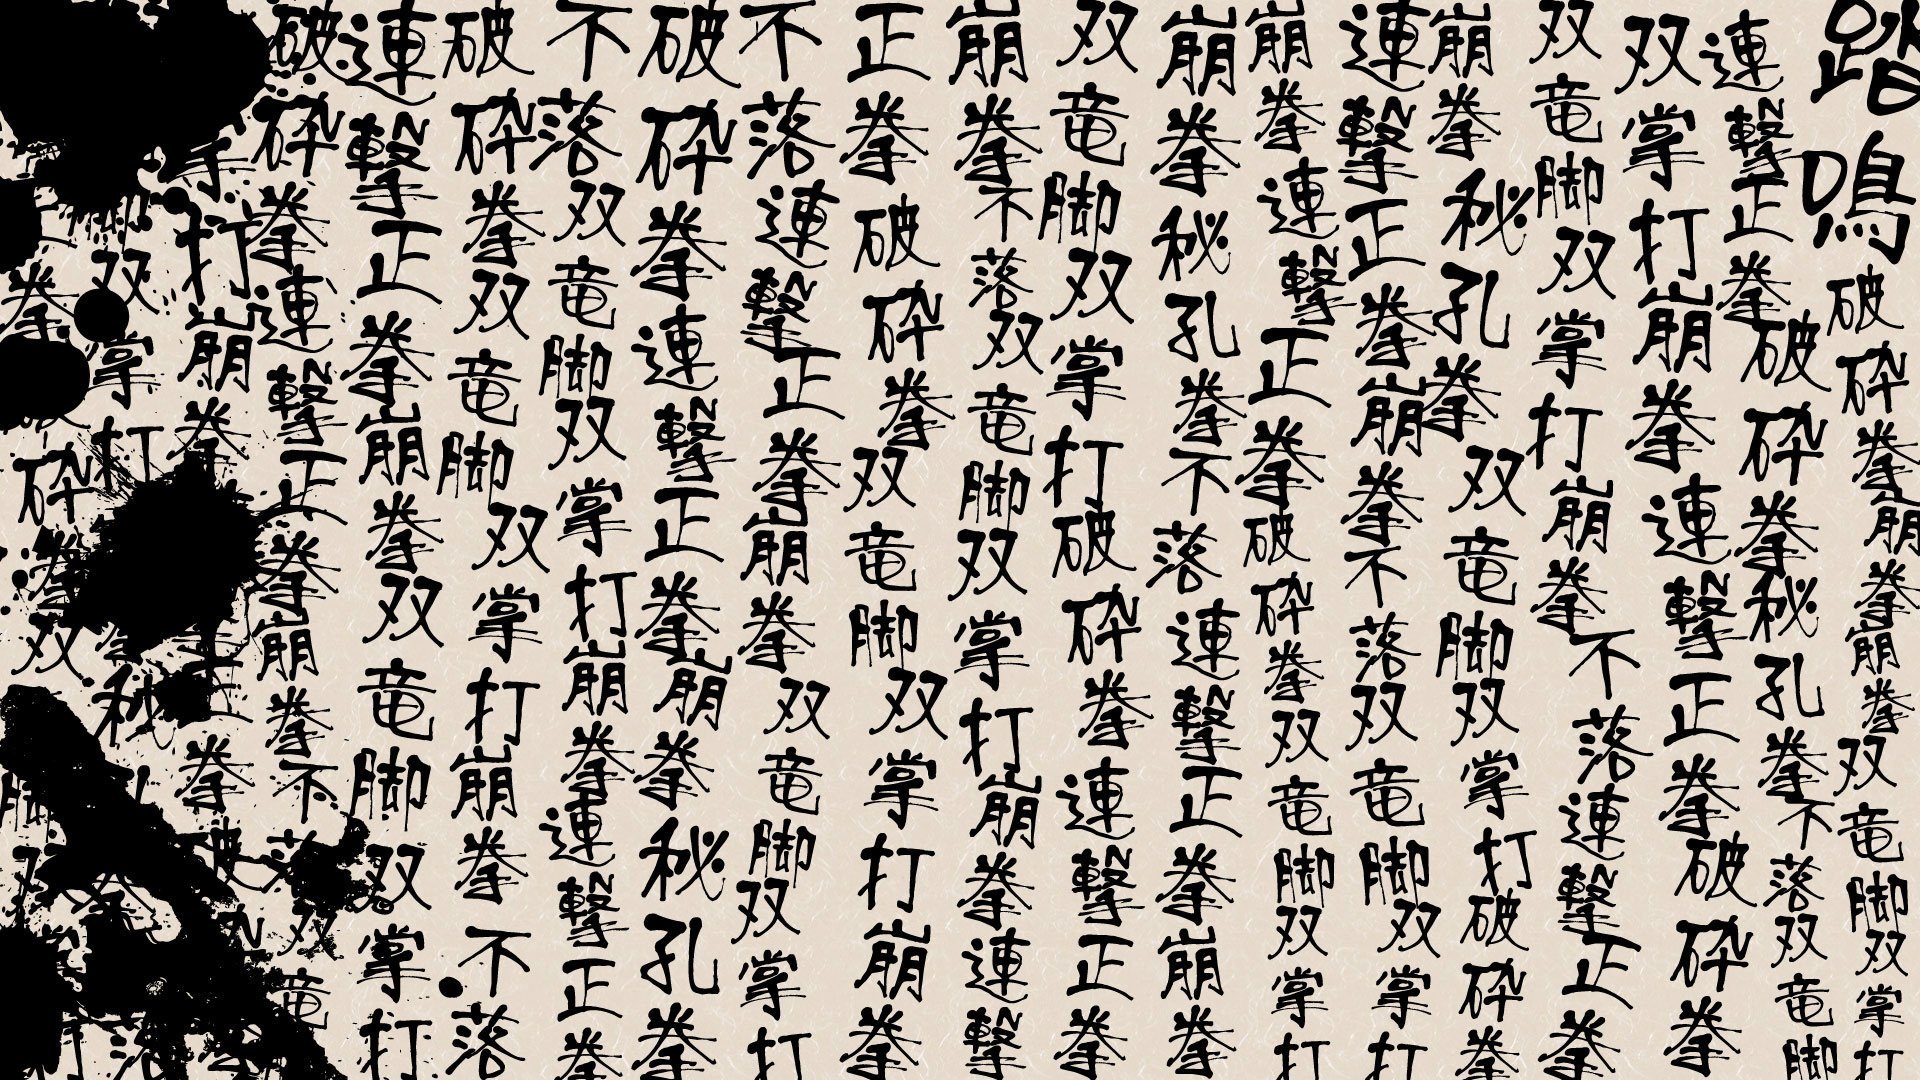 踏鳴破砕拳崩拳崩拳双竜脚双掌打
連撃正拳破砕拳秘孔拳不落双竜脚
双掌打崩拳連撃正拳破砕拳
双竜脚双掌打崩拳不落連撃正拳
崩拳秘孔拳双竜脚双掌打破砕拳
連撃正拳崩拳不落双竜脚双掌打
崩拳連撃正拳破砕拳双竜脚双掌打
崩拳秘孔拳不落連撃正拳崩拳
双竜脚双掌打破砕拳連撃正拳
崩拳不落双竜脚双掌打崩拳連撃
正拳破砕拳双竜脚双掌打崩拳
不落連撃正拳崩拳双竜脚双掌打
破砕拳連撃正拳崩拳秘孔拳
不落双竜脚双掌打崩拳連撃正拳
破砕拳双竜脚双掌打崩拳不落
連撃正拳崩拳双竜脚双掌打
破砕拳連撃正拳崩拳不落双竜
掌打崩拳拳破
双掌打秘
拳砕拳双脚双